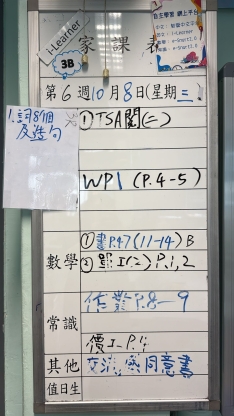 家課表
i-Learner
3B
自主學習網上平台
第6週10月8日(星期三)
1.詞8個
及造句
①TSA閱(二)
WP1 (P.4-5)
數學
①書P.47(11-14)B
②單I(二)P.1,2
常識
作業P.8-9
其他
同意書
值日生